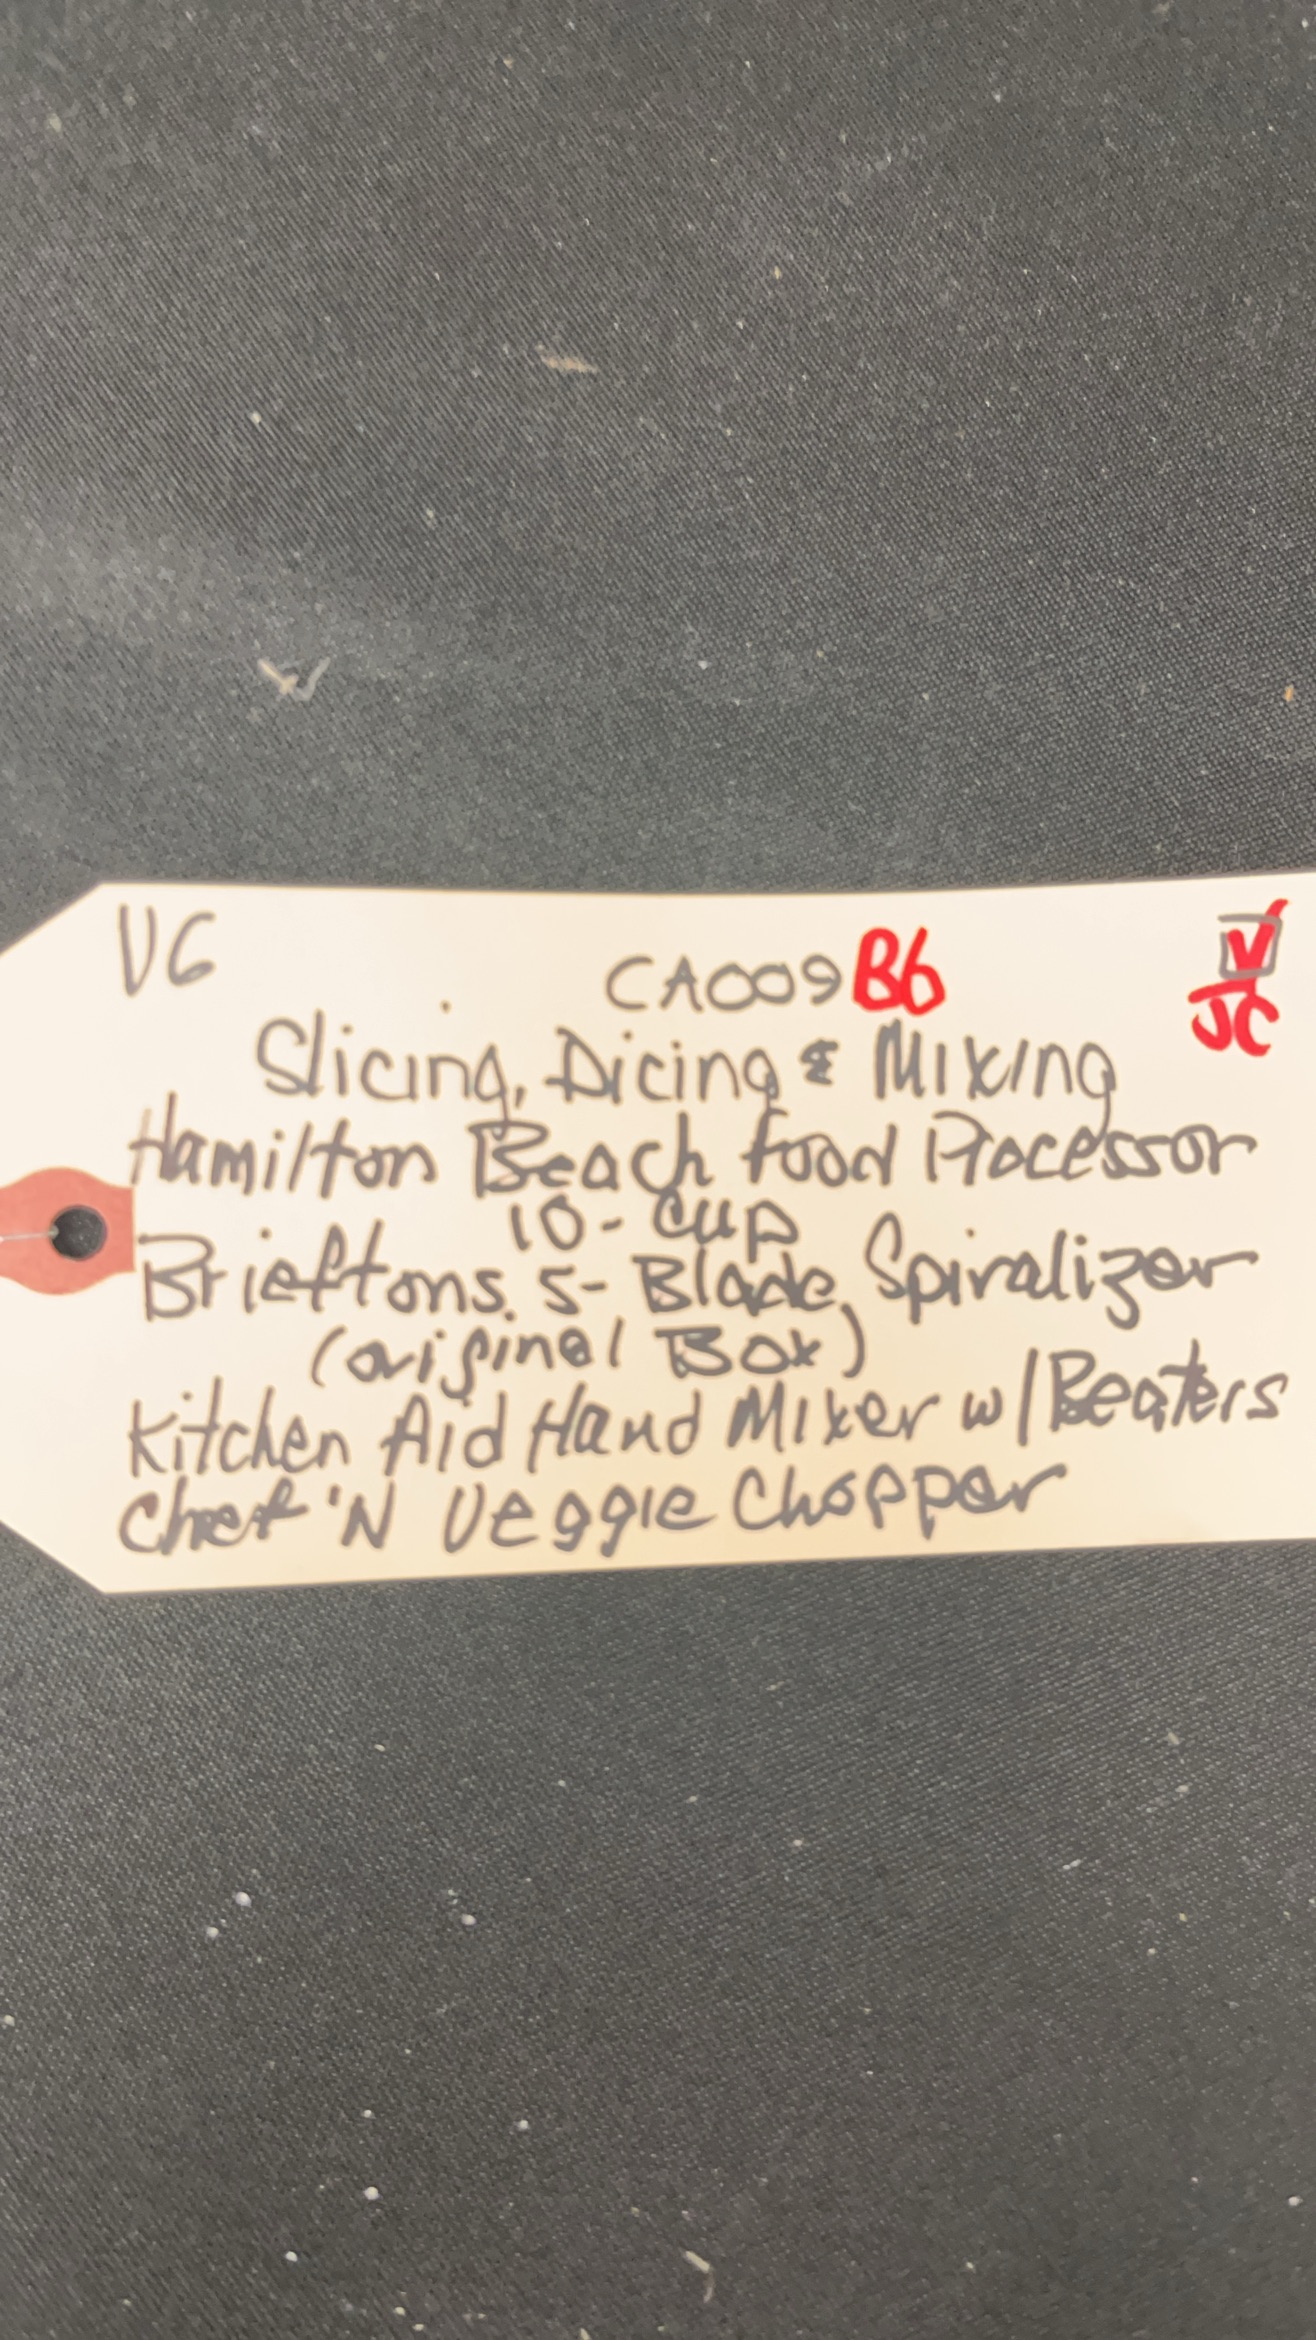 VG
CA009 B6
V
JC
Slicing, Dicing & Mixing
Hamilton Beach Food Processor
10-Cup
Brieftons 5-Blade Spiralizer
(original Box)
Kitchen Aid Hand Mixer w/Beaters
Chef'N Veggie Chopper